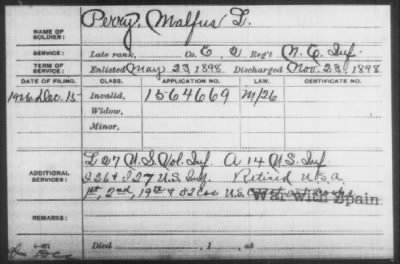 NAME OF SOLDIER: Perry, Malfus L.
SERVICE: Late rank, Co. E, 2 Reg't N. C. Inf.
TERM OF SERVICE: Enlisted May 23, 1898. Discharged Nov. 23, 1898
DATE OF FILING. CLASS. APPLICATION NO. LAW. CERTIFICATE NO.
1926 Dec. 15 Invalid, 1564669 M/26
Widow,
Minor,
L 27 U.S. Vol. Inf. A 14 U.S. Inf.
ADDITIONAL SERVICES: I 26 & I 27 U.S. Inf. Retired U.S.A
1st, 2nd, 19th & 82 Cos U.S.
War with Spain
REMARKS:
Died , 1 , at